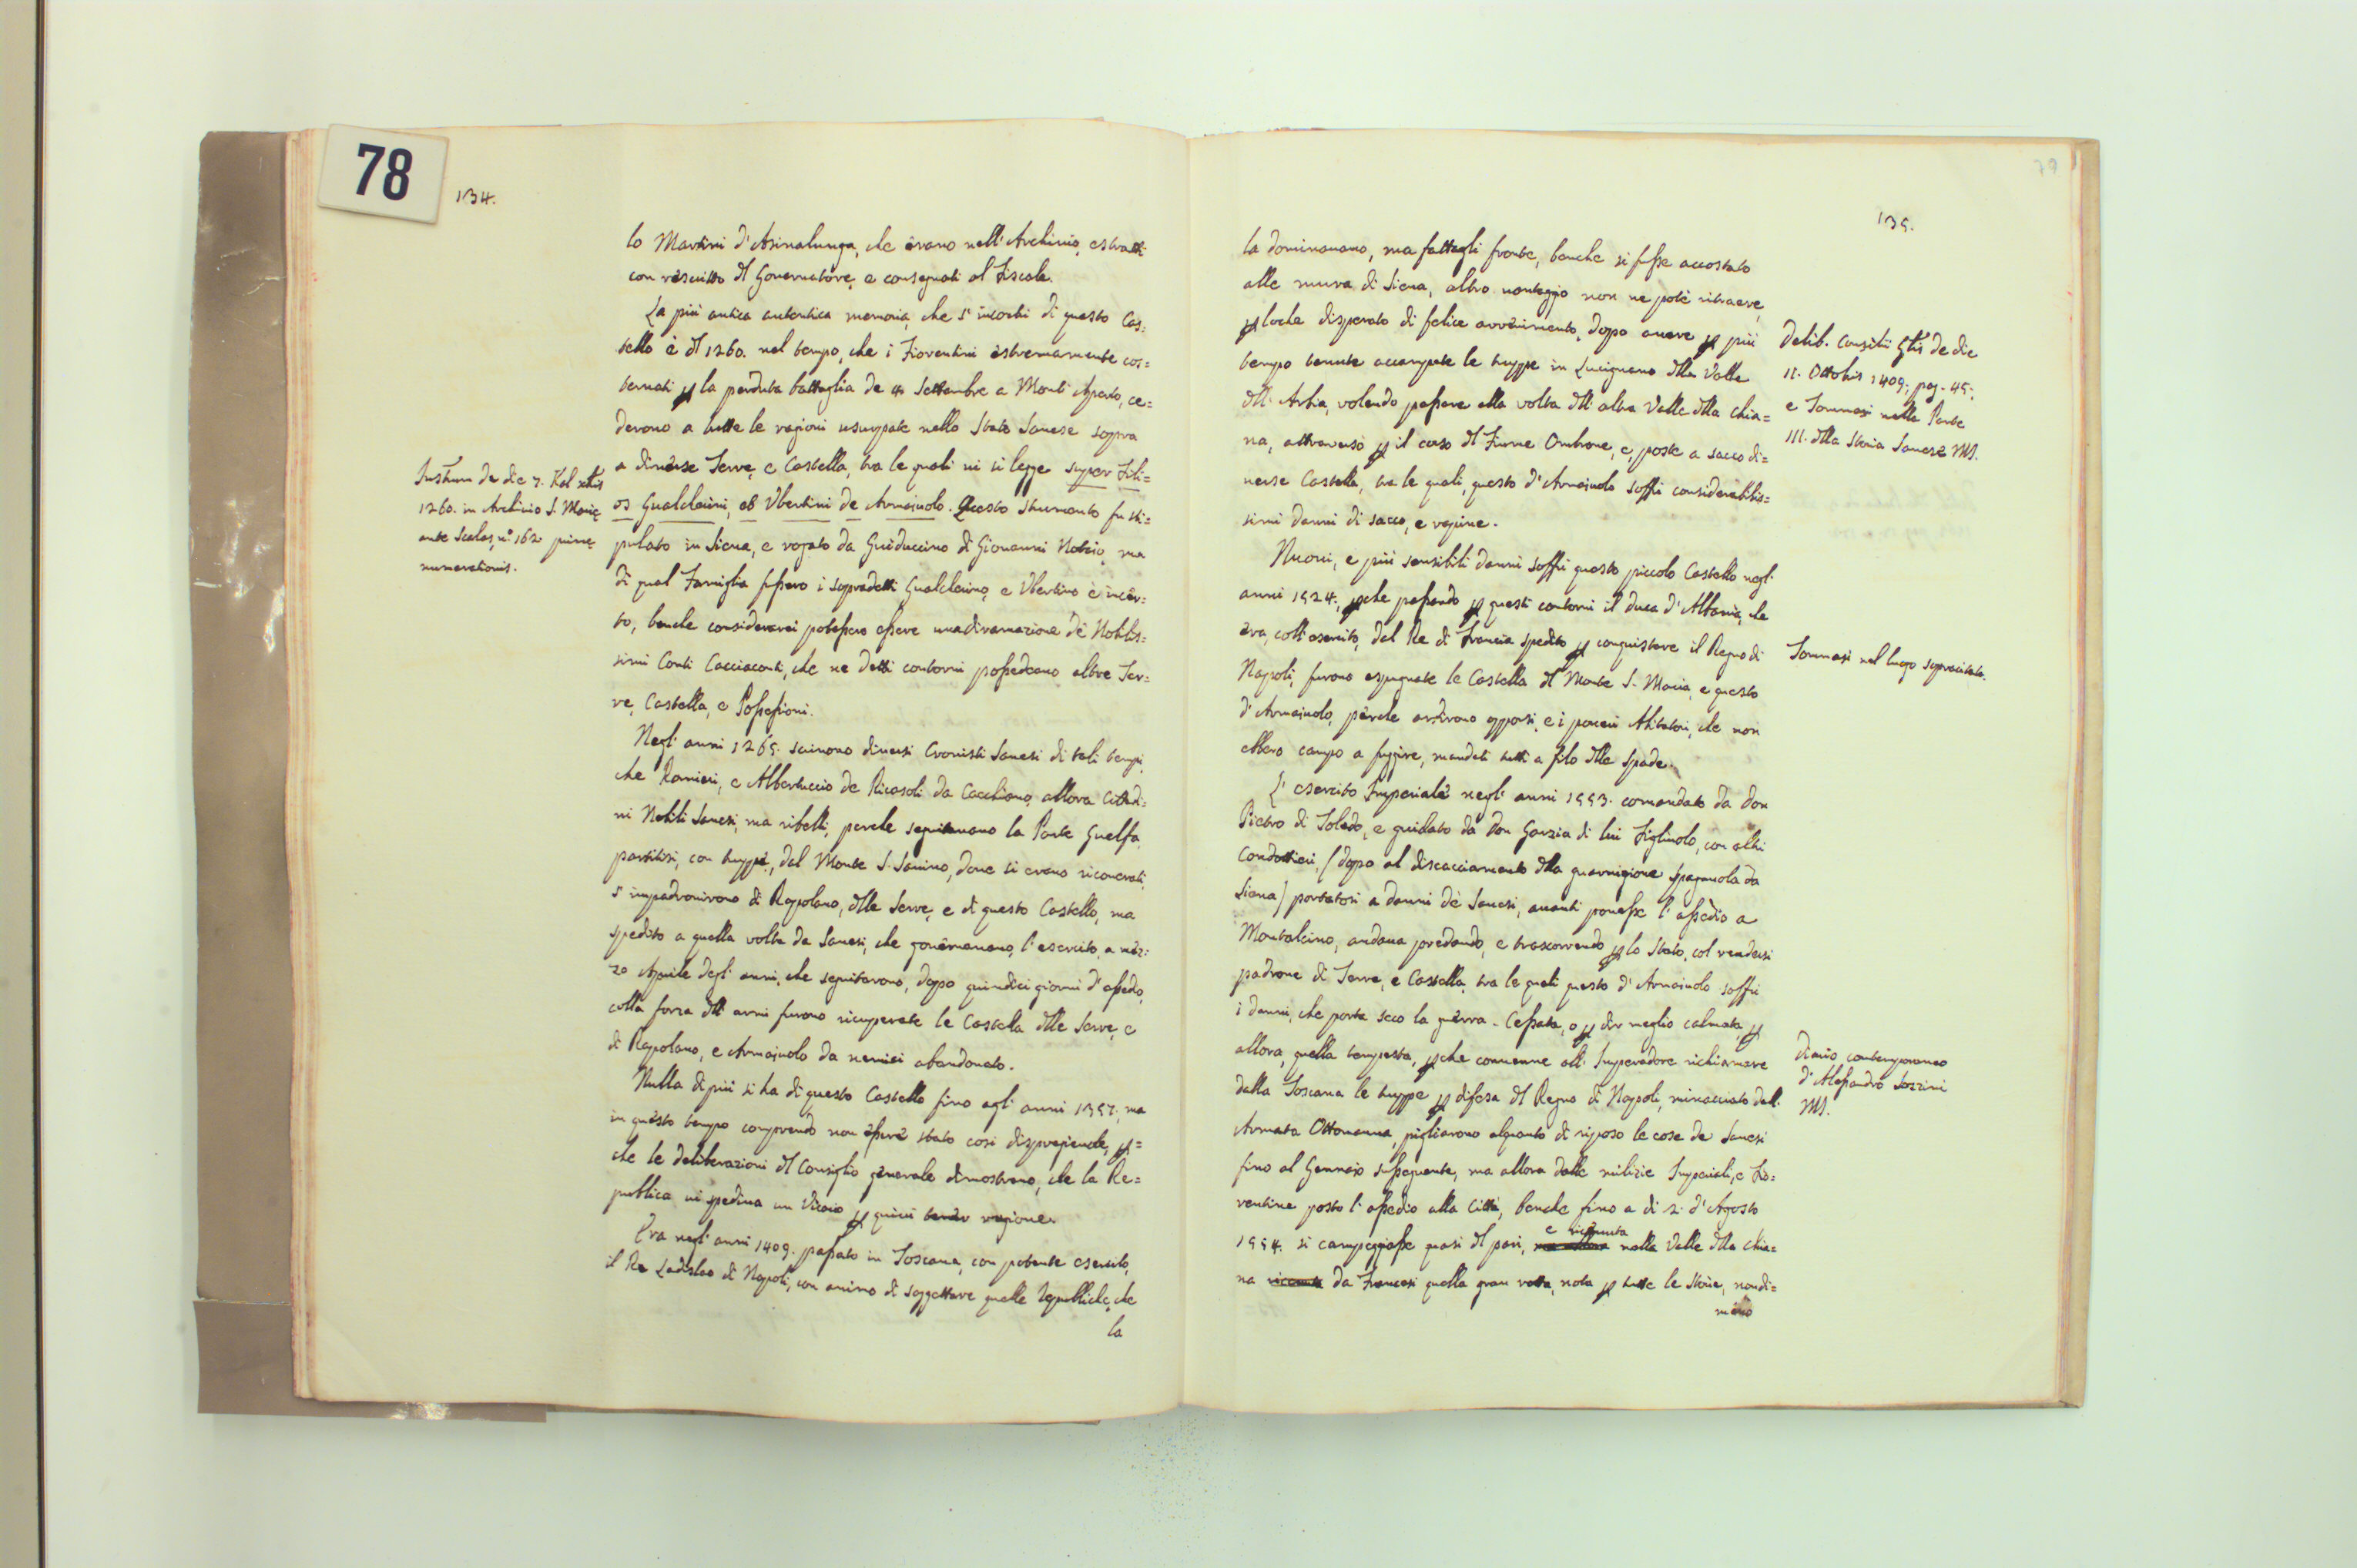 78
134.
lo Martini d'Asinalunga, che èrano nell'Archivio, estratti
con rèscritto dl Governatore, e consegnati al Fiscale.
La più antica autentica memoria, che s'incontri di questo Cas=
tello è dl 1260. nel tempo, che i Fiorentini èstremamente cos=
ternati la perduta battaglia de 4 Settembre a Monti Aperto, ce=
derono a tutte le ragioni usurpate nello Stato Sanese sopra
a divèrse Terre, e Castella, tra le quali vi si legge super Fili=
os Gualchèrini, et Ubertini de Armajuolo. Questo strumento fu sti=
pulato in Siena, e rogato da Guiduccino di Giovanni Notaio, ma
di qual Famiglia fossero i sopradetti Gualcherino, e Ubertino è incèr=
to, benche considererei potessero essere una diramazione dè Nobilis=
simi Conti Cacciaconti, che ne detti contorni possedeano altre Ter=
re, Castella, e Possessioni.
Instrum de die 7. Kal xbris
1260. in Archivio S. Marie
ante Scalas, n.° 162 prime
numerationis.
Negl'anni 1265. scivono diversi Cronisti Sanesi di tali tempi,
che Ranieri, e Albertuccio de Ricasoli da Cacchiano, allora Cittadi=
ni Nobili Sanesi, ma ribelli, perche seguitavano la Parte Guelfa,
partitisi, con truppe, dal Monte S. Savino, dove si erano ricoverati,
s'impadronirono di Rapolano, dlle Serre, e di questo Castello, ma
spedito a quella volta da Sanesi, che govèrnavano, l'esercito, a mèz=
zo Aprile degl'anni, che seguitarono, dopo quindici giorni d'assedio,
colla forza dll'armi furono ricuperate le Castella dlle Serre, e
di Rapolano, e Armajuolo da nemici abandonato.
Nulla di più si ha di questo Castello fino agl'anni 1357; ma
in quèsto tempo comprendo non èssere stato così dispregievole,
che le deliberazioni dl Consiglio gènerale dimostrano, che la Re=
publica vi spediva un Vicario quivi tenèr ragione.
Era negl'anni 1409. passato in Toscana, con potente esercito,
il Re Ladislao di Napoli, con animo di soggettare quelle Republiche, che
la
79
135.
la dominavano, ma fattogli fronte, benche si fosse accostato
alle mura di Siena, altro vantaggio non ne potè ritraere,
loche disperato di felice avvènimento, dopo avere più
tempo tenute accampate le truppe in Lucignano dlla Valle
dll'Arbia, volendo passare alla volta dll'altra Valle dlla Chia=
na, attraversò il corso dl Fiume Ombrone, e, poste a sacco di=
verse Castella, tra le quali, questo d'Armajuolo soffrì considerabilis=
simi danni di sacco, e rapine.
Delib. Consilii Gñs de die
11. Ottobris 1409; pag. 45;
e Tommasi nella Parte
III. dlla Storia Sanese MS.
Nuovi, e più sensibili danni soffrì questo piccolo Castello negl'
anni 1524., che passando questi contorni il Duca d'Albania, che
èra, coll'esercito, dal Re di Francia spedito conquistare il Regno di
Napoli, furono espugnate le Castella dl Monte S. Maria, e questo
d'Armajuolo, pèrche ardirono opporsi, e i poveri Abitatori, che non
ebbero campo a fuggire, mandati tutti a filo dlla Spada.
Tommasi nel luogo sopracitato.
L'esercito Imperiale negl'anni 1553. comandato da Don
Pietro di Toledo, e guidato da Don Garzia di lui Figliuolo, con altri
Condottieri, (dopo al discacciamento dlla guarnigione Spagnuola da
Siena) portatosi a danni de Sanesi, avanti ponesse l'assèdio a
Montalcino, andava predando, e trascorrendo lo Stato, col rendersi
padrone di Terre, e Castella, tra le quali questo d'Armaiuolo soffrì
i danni, che porta seco la guèrra. Cessata, o dir meglio calmata,
allora, quella tempesta, che convenne all'Imperadore richiamare
dalla Toscana le truppe difesa dl Regno di Napoli, minacciato dall'
Armata Ottomanna, pigliarono alquanto di riposo le cose de Sanesi
fino al Gennaio susseguente, ma allora dalle milizie Imperiali, e Fio=
rentine posto l'assedio alla Città, benche fino a dì 2. d'Agosto
1554. si campeggiasse quasi dl pari, e ricevuta nella Valle dlla Chia=
na ricevuta da Francesi quella gran rotta, nota tutte le Storie, nondi=
mèno
Diario contemporaneo
d'Alessandro Sozzini
MS.